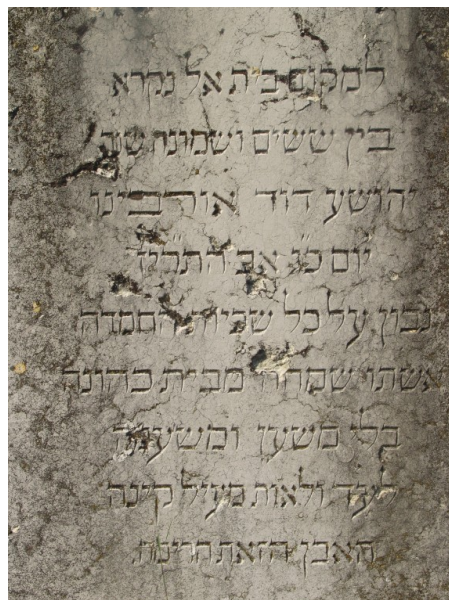 למקום בית אל נקרא
בין ששים ושמונת שנה
יהושע דוד אורבינו
יום כ״ג אב התרי״ז
נבון על כל שביות החמדה
אשתו שמחה מבית כהונה
בלי משען ומשענה
לעד ולאות מעיל קינה
האבן הזאת הרימה